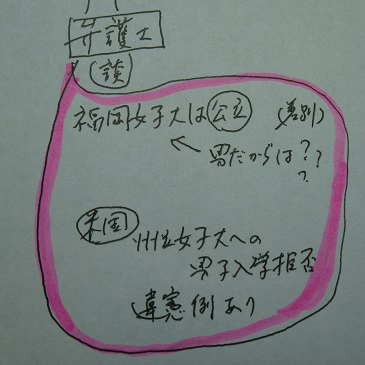 弁護士
護
福岡女子大は公立 (差別)
男だからは???
米国 州立女子大への
男子入学拒否
違憲例あり